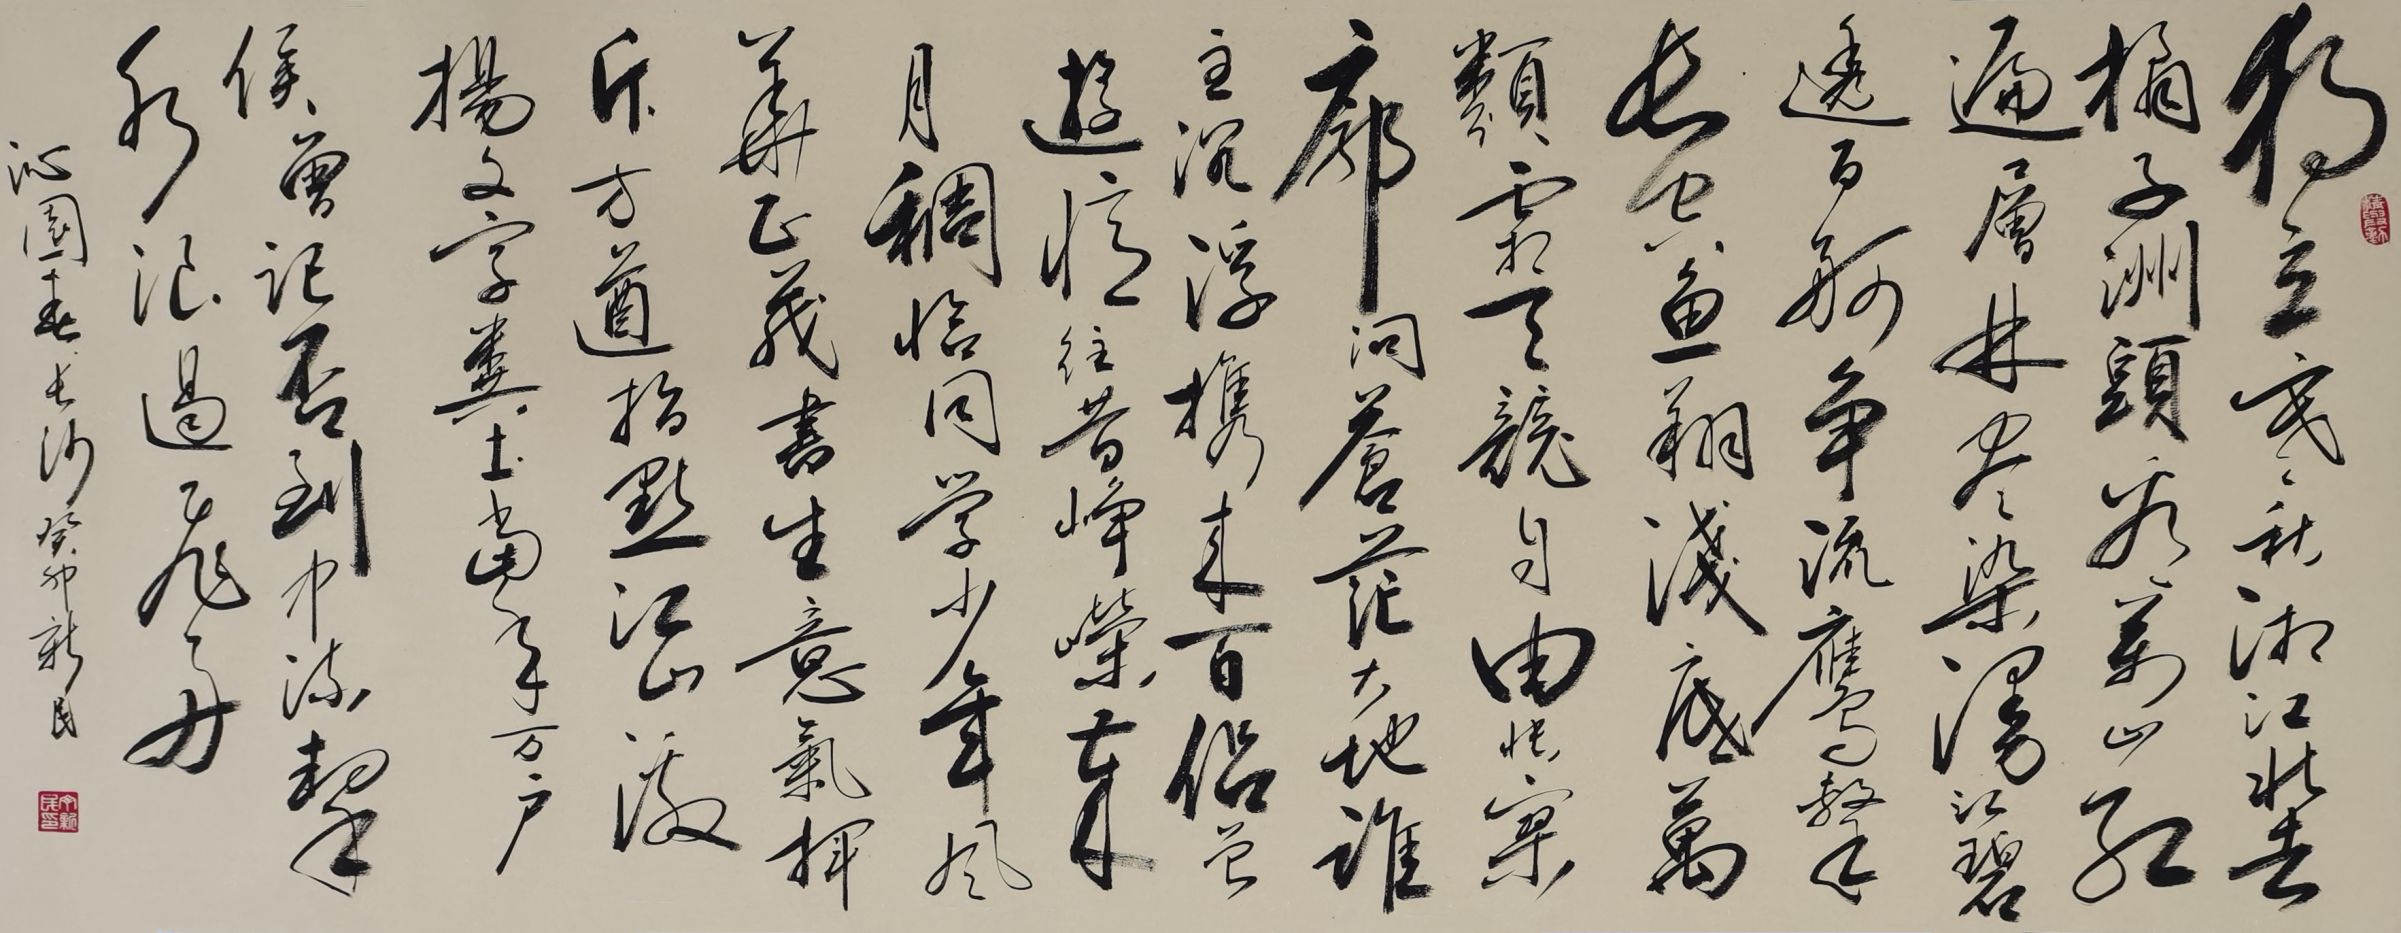 独立寒秋湘江北去
橘子洲頭看萬山红
遍層林尽染漫江碧
透百舸争流鷹擊
长空魚翔淺底萬
類霜天競自由怅寥
廓问蒼茫大地谁
主沉浮携来百侣曾
遊忆往昔峥嵘歲
月稠恰同学少年风
華正茂書生意氣揮
斥方遒指點江山激
揚文字糞土當年万户
侯曾记否到中流擊
水浪遏飞舟
沁園春长沙 癸卯新民